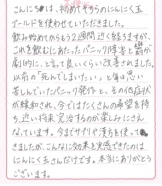 こんにちは、初めてそちらのにんにく玉
ゴールドを使わせていただきました。
飲み始めてからもう2週間近く経ちますが、
これを飲むにあたったパニック障害と鬱が
劇的に、と言って良いくらい改善されました。
以前の「死んでしまいたい」と毎日思い
苦しんでいたパニック発作と、その他症状
が緩和され、今ではたくさんの希望を持
ち、近い将来完治するのが楽しみにさえ
なっています。今までサプリや漢方を使って
きましたが、こんなに効果を実感できたのは
にんにく玉さんだけです。本当にありがとう
ございます。